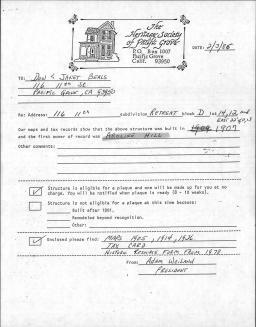 The
Heritage Society
of Pacific Grove
P.O. Box 1007
Pacific Grove
Calif. 93950
DATE: 2/3/86
TO: DON & JANET BEALS
116 11th St
PACIFIC GROVE, CA 93950
Re: Address: 116 11th subdivision RETREAT block D lot 14, 12 and
Our maps and tax records show that the above structure was built in 1907
and the first owner of record was HILL
Other comments:
Structure is eligible for a plaque and one will be made up for you at no
charge. You will be notified when plaque is ready (8 - 10 weeks).
Structure is not eligible for a plaque at this time because:
Built after 1901.
Remodeled beyond recognition.
Other:
Enclosed please find: MAPS 1905, 1914, 1926
TAX CARD
HISTORIC RESOURCE FORM FROM 1978
From: ADAM WEILAND
PRESIDENT